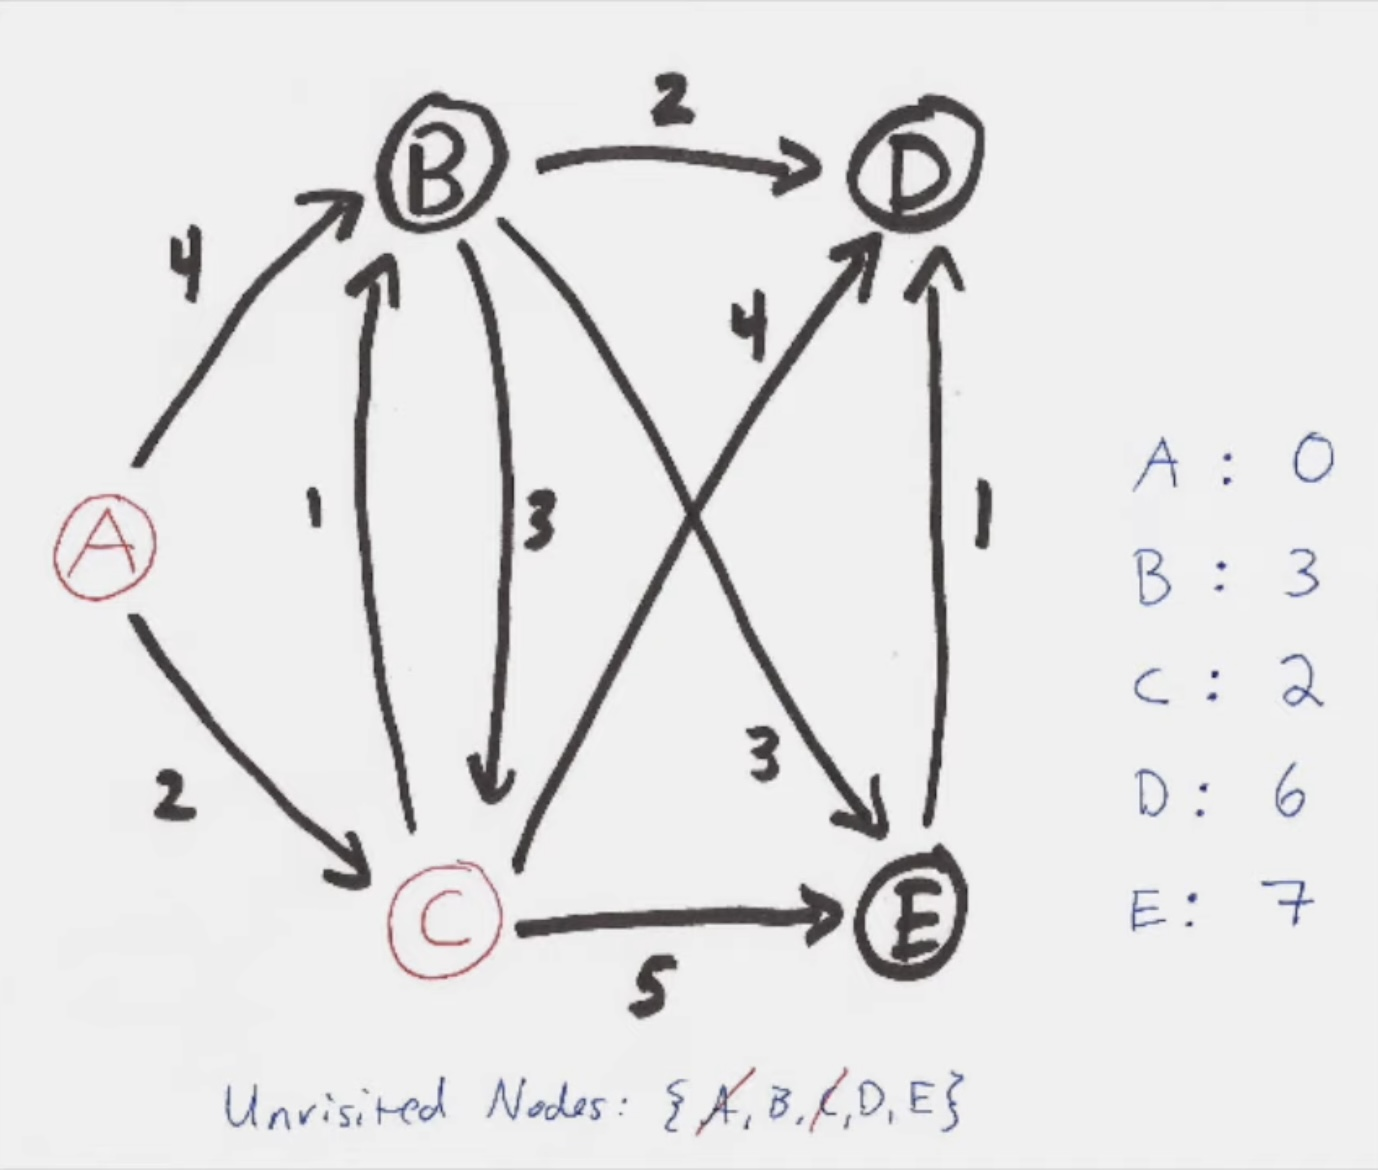 2
B
D
4
4
1
3
1
A
3
2
C
E
5
A : 0
B : 3
C : 2
D : 6
E : 7
Unvisited Nodes: {A, B, C, D, E}